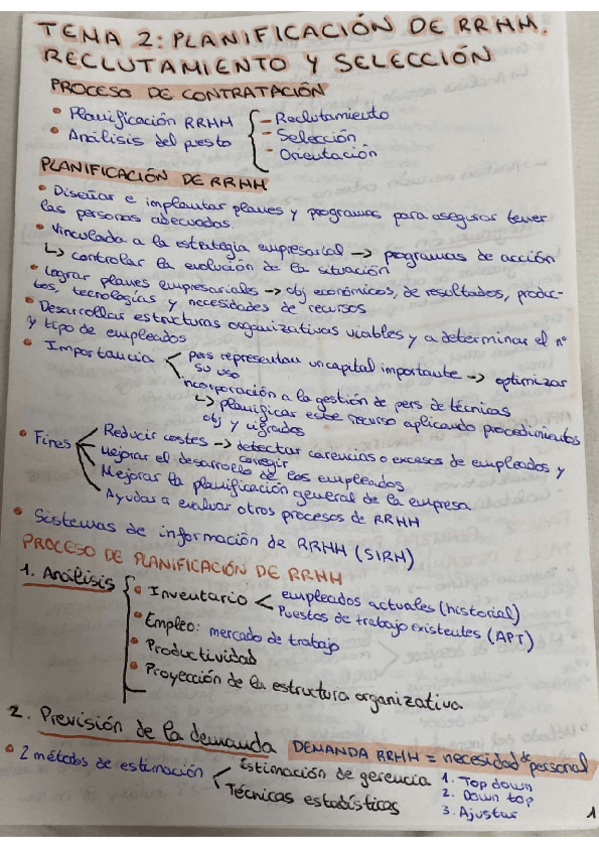 TEMA 2: PLANIFICACIÓN DE RRHH.
RECLUTAMIENTO Y SELECCIÓN
PROCESO DE CONTRATACIÓN
• Planificación RRHH
• Análisis del puesto
- Reclutamiento
- Selección
- Orientación
PLANIFICACIÓN DE RRHH
• Diseñar e implantar planes y programas para asegurar tener
las personas adecuadas.
• Vinculada a la estrategia empresarial → programas de acción
↳ controlar la evolución de la situación
• Lograr planes empresariales → obj económicos, de resultados, produc-
tos, tecnologías y necesidades de recursos
• Desarrollar estructuras organizativas viables y a determinar el nº
y tipo de empleados
• Importancia
pers representan un capital importante → optimizar
su uso
incorporación a la gestión de pers de técnicas
↳ planificar este recurso aplicando procedimientos
obj y
• Fines
Reducir costes → detectar carencias o excesos de empleados y
corregir
Mejorar el desarrollo de los empleados
Mejorar la planificación general de la empresa
Ayudar a evaluar otros procesos de RRHH
• Sistemas de información de RRHH (SIRH)
PROCESO DE PLANIFICACIÓN DE RRHH
1. Análisis
• Inventario
empleados actuales (historial)
Puestos de trabajo existentes (APT)
• Empleo: mercado de trabajo
• Productividad
• Proyección de la estructura organizativa
2. Previsión de la demanda DEMANDA RRHH = necesidad de personal
• 2 métodos de estimación
Estimación de gerencia
Técnicas estadísticas
1. Top down
2. Down top
3. Ajustar
1